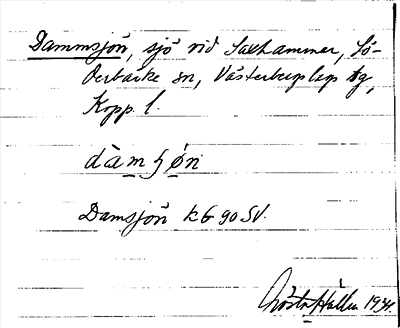 Dammsjön, sjö vid Saxhammer, Sö-
derbärke sn, Västerbergslags dg,
Kopp. l.
dàmʃø̀n
Damsjön kG 90 SV.
Gösta Hallén 1934.